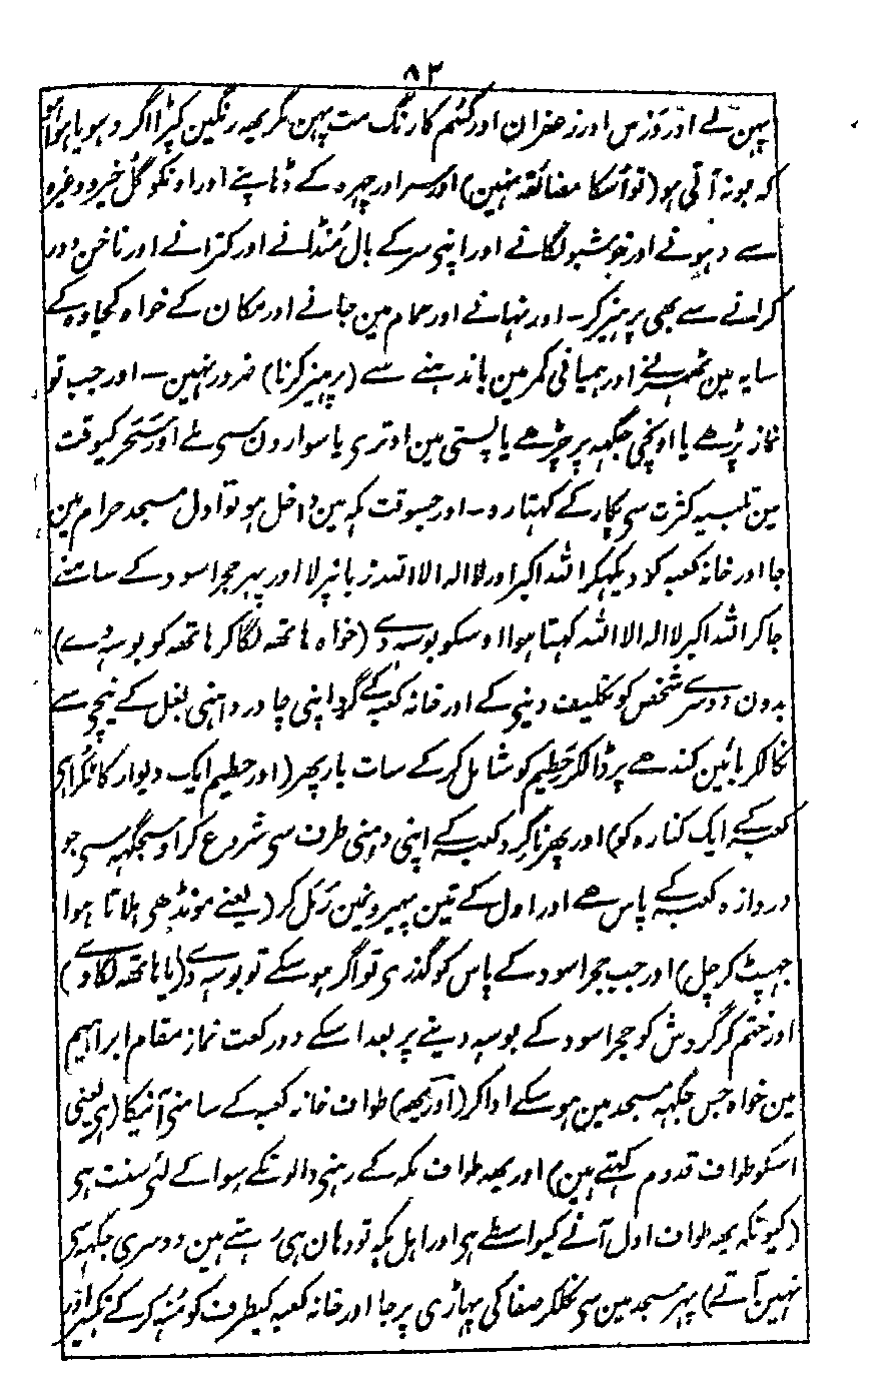 ۸۳
پہن لے اور وَرس اور زعفران اور کسُم کا رنگ مت پہن مگر یہہ رنگین کپڑا اگر دہویا ہوا ہو
کہ بو نہ آتی ہو (تو اُسکا مضائقہ نہین) اور سر اور چہرہ کے ڈہاپنے اور اونکو گل خیرو وغیرہ
سے دہونے اور خوشبو لگانے اور اپنی سر کے بال مُنڈانے اور کترانے اور ناخن دور
کرانے سے بھی پرہیز کر۔ اور نہانے اور حمام مین جانے اور مکان کے خواہ کجاوہ کے
سایہ مین ٹھہرنے اور ہمیانی کمر مین باندہنے سے (پرہیز کرنا) ضرور نہین۔ اور جب تو
نماز پڑھے یا اونچی جگہہ پر چڑھے یا پستی مین اوتری یا سوارون سی ملے اور سَحَر کیوقت
مین تلبیہ کثرت سی پکار کے کہتا رہ۔ اور جسوقت مکہ مین داخل ہو تو اول مسجد حرام مین
جا اور خانہ کعبہ کو دیکہکر اللہ اکبر اور لا الہ الا اللہ زبانپر لا اور پہر حجر اسود کے سامنے
جا کر اللہ اکبر لا الہ الا اللہ کہتا ہوا اوسکو بوسہ دے (خواہ ہاتھہ لگا کر ہاتھہ کو بوسہ دے)
بدون دوسرے شخص کو تکلیف دینی کے اور خانہ کعبہ کے گرد اپنی چادر داہنی بغل کے نیچی سے
نکالکر بائین کندھے پر ڈالکر حَطیم کو شامل کر کے سات بار پھر (اور حطیم ایک دیوار کا ٹکڑا ہی
کعبہ کے ایک کنارہ کو) اور پھرنا گرد کعبہ کے اپنی دہنی طرف سی شروع کر اوسجگہہ سی جو
دروازہ کعبہ کے پاس ھے اور اول کے تین پہیرونمین رَمَل کر (یعنے مونڈھی ہلاتا ہوا
جہپٹ کر چل) اور جب حجر اسود کے پاس کو گذری تو اگر ہو سکے تو بوسہ دے (یا ہاتھہ لگاوے)
اور ختم کر گردش کو حجر اسود کے بوسہ دینے پر بعد اسکے دو رکعت نماز مقام ابراہیم
مین خواہ جس جگہہ مسجد مین ہو سکے ادا کر (اور یھہ) طواف خانہ کعبہ کے سامنی آنیکا (ہی یعنی
اسکو طواف قدوم کہتے ہین) اور یھہ طواف مکہ کے رہنی والونکے سوا کے لئی سنت ہی
(کیونکہ یھہ طواف اول آنے کیواسطے ہی اور اہل مکہ تو وہان ہی رہتے ہین دوسری جگہہ سی
نہین آتے) پہر مسجد مین سی نکلکر صفا کی پہاڑی پر جا اور خانہ کعبہ کیطرف کو مُنہ کر کے تکبیر اور